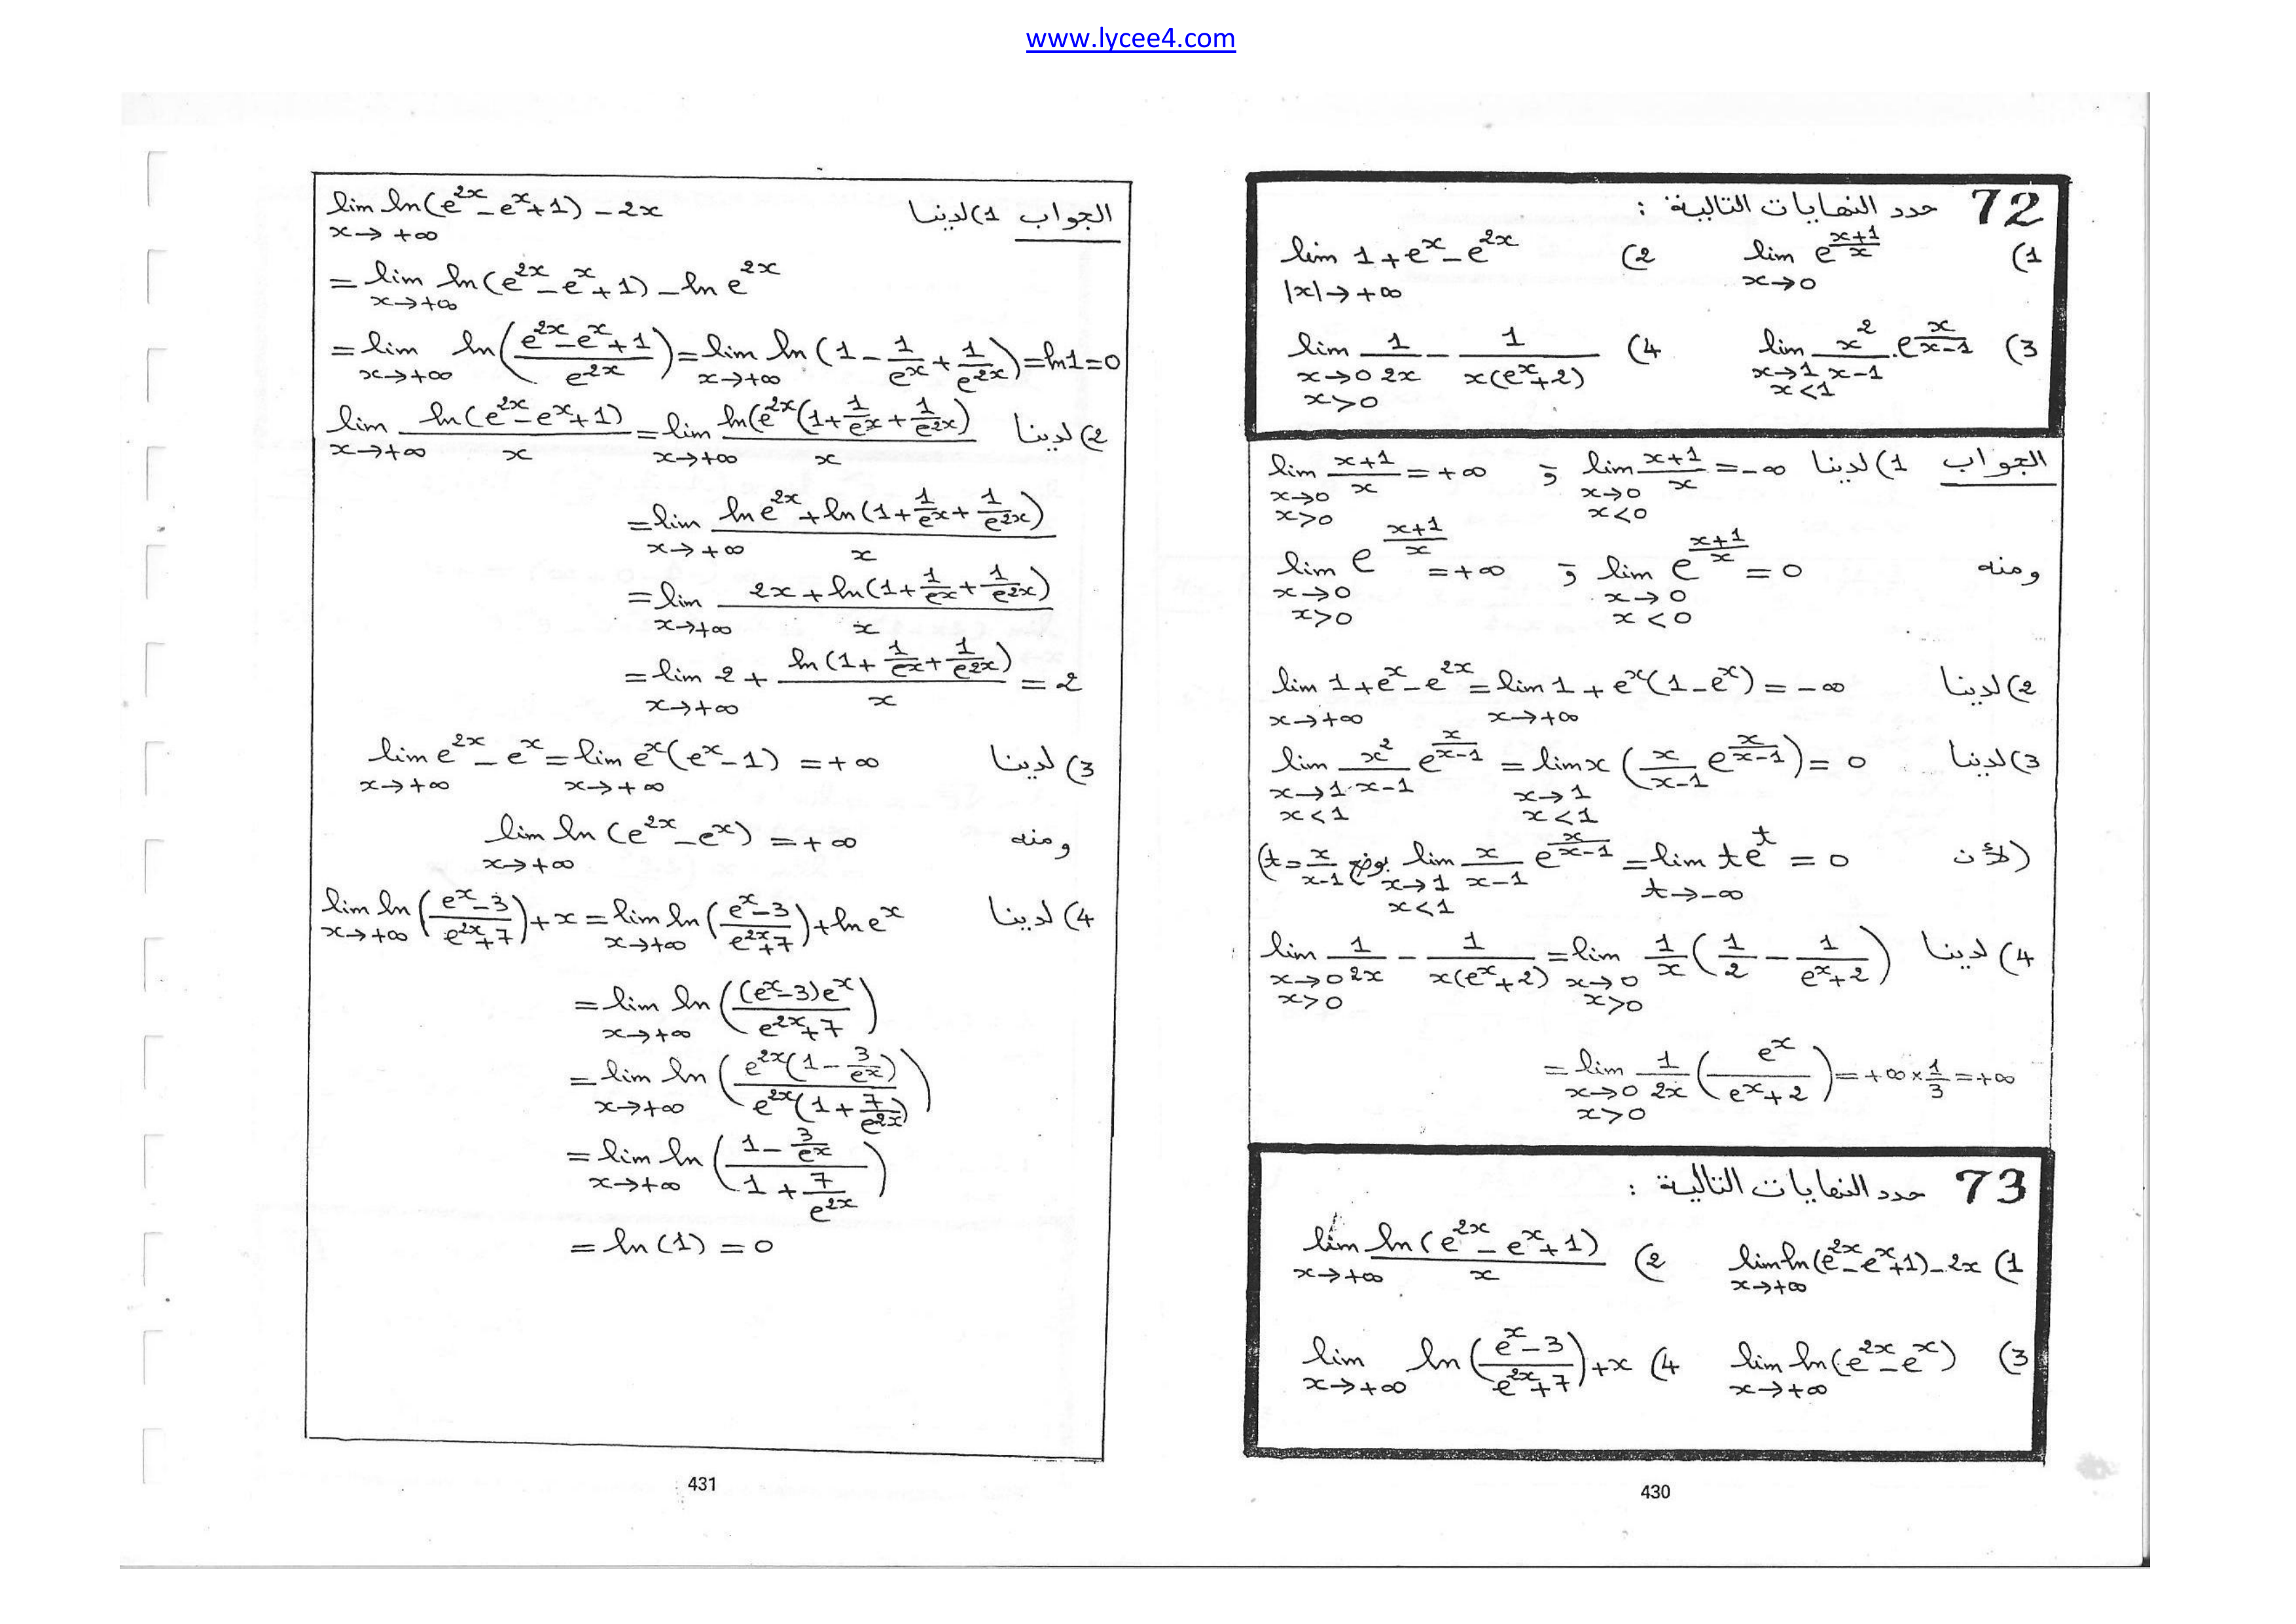 www.lycee4.com
72 حدد النهايات التالية :
1) lim_{x→0} e^{(x+1)/x}   2) lim_{|x|→+∞} 1+e^x-e^{2x}
3) lim_{x→1, x<1} x^2/(x-1) . e^{x/(x-1)}   4) lim_{x→0, x>0} 1/(2x) - 1/(x(e^x+2))
الجواب 1) لدينا lim_{x→0, x<0} (x+1)/x = -∞ و lim_{x→0, x>0} (x+1)/x = +∞
ومنه lim_{x→0, x<0} e^{(x+1)/x} = 0 و lim_{x→0, x>0} e^{(x+1)/x} = +∞
2) لدينا lim_{x→+∞} 1+e^x-e^{2x} = lim_{x→+∞} 1+e^x(1-e^x) = -∞
3) لدينا lim_{x→1, x<1} x^2/(x-1) e^{x/(x-1)} = lim_{x→1, x<1} x (x/(x-1) e^{x/(x-1)}) = 0
(لأن lim_{x→1, x<1} x/(x-1) e^{x/(x-1)} = lim_{t→-∞} te^t = 0 بوضع t = x/(x-1))
4) لدينا lim_{x→0, x>0} 1/(2x) - 1/(x(e^x+2)) = lim_{x→0, x>0} 1/x (1/2 - 1/(e^x+2))
= lim_{x→0, x>0} 1/(2x) (e^x/(e^x+2)) = +∞ × 1/3 = +∞
73 حدد النهايات التالية :
1) lim_{x→+∞} ln(e^{2x}-e^x+1)-2x   2) lim_{x→+∞} ln(e^{2x}-e^x+1)/x
3) lim_{x→+∞} ln(e^{2x}-e^x)   4) lim_{x→+∞} ln((e^x-3)/(e^{2x}+7))+x
430
الجواب 1) لدينا lim_{x→+∞} ln(e^{2x}-e^x+1)-2x
= lim_{x→+∞} ln(e^{2x}-e^x+1)-ln e^{2x}
= lim_{x→+∞} ln((e^{2x}-e^x+1)/e^{2x}) = lim_{x→+∞} ln(1-1/e^x+1/e^{2x}) = ln1 = 0
2) لدينا lim_{x→+∞} ln(e^{2x}-e^x+1)/x = lim_{x→+∞} ln(e^{2x}(1+1/e^x+1/e^{2x})/x
= lim_{x→+∞} (ln e^{2x}+ln(1+1/e^x+1/e^{2x}))/x
= lim_{x→+∞} (2x+ln(1+1/e^x+1/e^{2x}))/x
= lim_{x→+∞} 2+ln(1+1/e^x+1/e^{2x})/x = 2
3) لدينا lim_{x→+∞} e^{2x}-e^x = lim_{x→+∞} e^x(e^x-1) = +∞
ومنه lim_{x→+∞} ln(e^{2x}-e^x) = +∞
4) لدينا lim_{x→+∞} ln((e^x-3)/(e^{2x}+7))+x = lim_{x→+∞} ln((e^x-3)/(e^{2x}+7))+ln e^x
= lim_{x→+∞} ln((e^x-3)e^x/(e^{2x}+7))
= lim_{x→+∞} ln(e^{2x}(1-3/e^x)/(e^{2x}(1+7/e^{2x})))
= lim_{x→+∞} ln((1-3/e^x)/(1+7/e^{2x}))
= ln(1) = 0
431